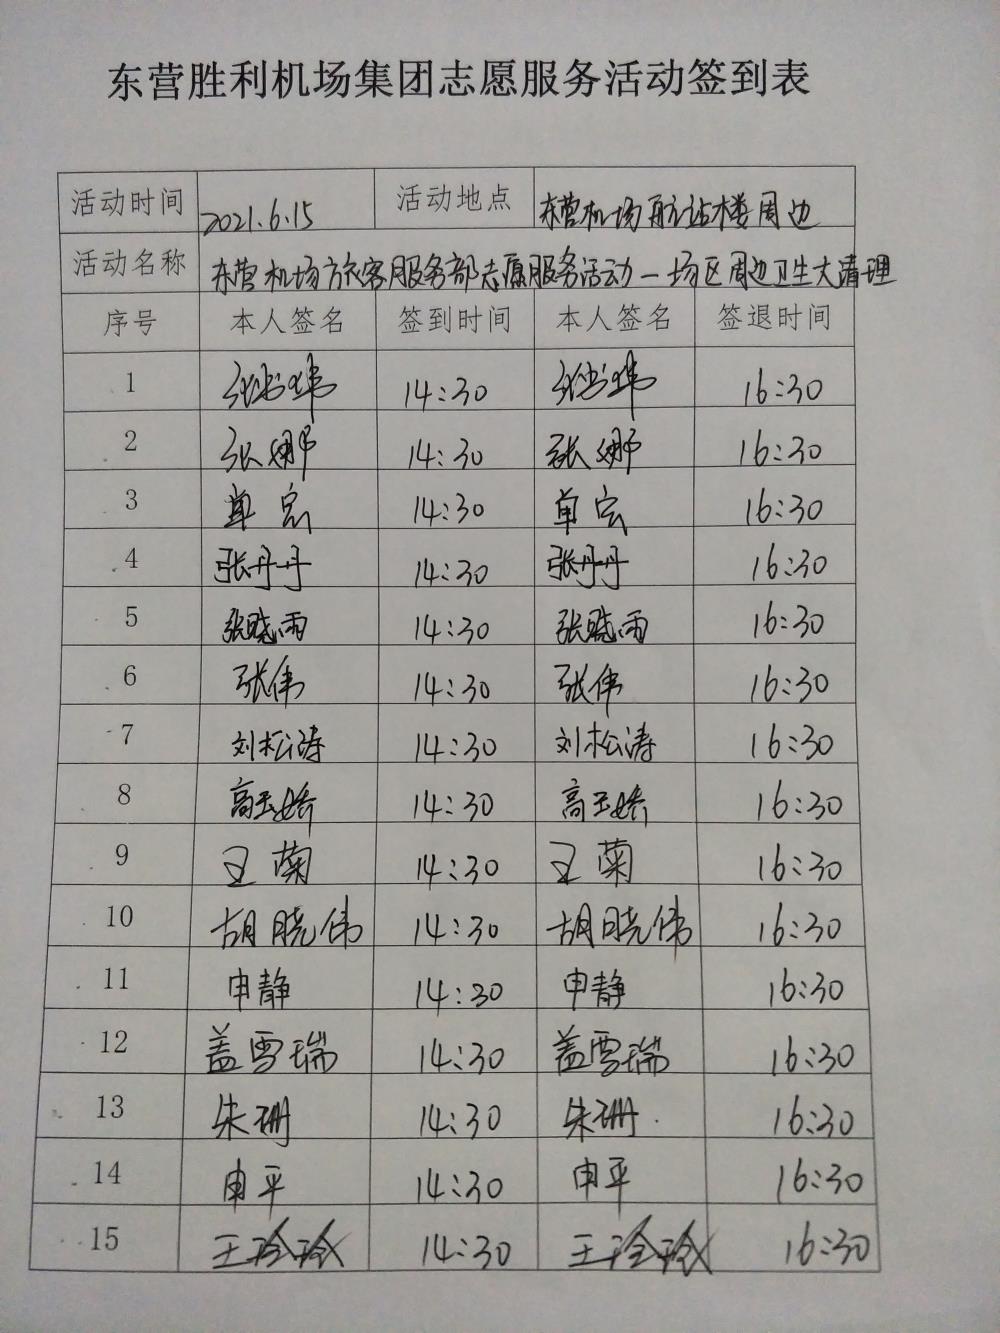 东营胜利机场集团志愿服务活动签到表
活动时间 2021.6.15 活动地点 东营机场航站楼周边
活动名称 东营机场旅客服务部志愿服务活动一场区周边卫生大清理
序号 本人签名 签到时间 本人签名 签退时间
1 14:30 16:30
2 张娜 14:30 张娜 16:30
3 单宏 14:30 单宏 16:30
4 张丹丹 14:30 张丹丹 16:30
5 张晓雨 14:30 张晓雨 16:30
6 张伟 14:30 张伟 16:30
7 刘松涛 14:30 刘松涛 16:30
8 高玉娇 14:30 高玉娇 16:30
9 王菊 14:30 王菊 16:30
10 胡晓伟 14:30 胡晓伟 16:30
11 申静 14:30 申静 16:30
12 盖雪瑞 14:30 盖雪瑞 16:30
13 朱珊 14:30 朱珊 16:30
14 申平 14:30 申平 16:30
15 王玲玲 14:30 王玲玲 16:30